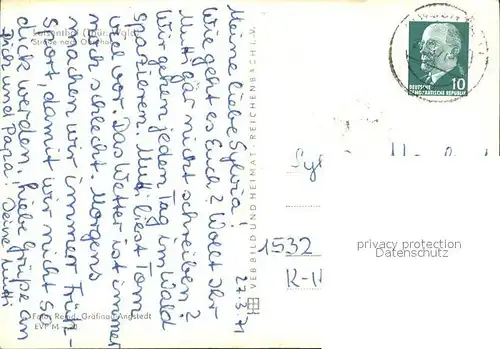 Luisenthal (Thür. Wald)
Straße nach Oberhof
27.3.71
Meine liebe Sylvia!
Wie geht es Euch? Wollt Ihr
Mutti gar nicht schreiben?
Wir gehen jeden Tag im Wald
spazieren. Mutti liest Tom
viel vor. Das Wetter ist immer
noch schlecht. Morgens
machen wir immer Früh-
sport, damit wir nicht so
dick werden. Liebe Grüße an
Dich und Papa! Deine Mutti
Foto: Gräfinau-Angstedt
EVP M
VEB BILD UND HEIMAT REICHENBACH I. V.
DEUTSCHE
DEMOKRATISCHE REPUBLIK
10
1532
privacy protection
Datenschutz